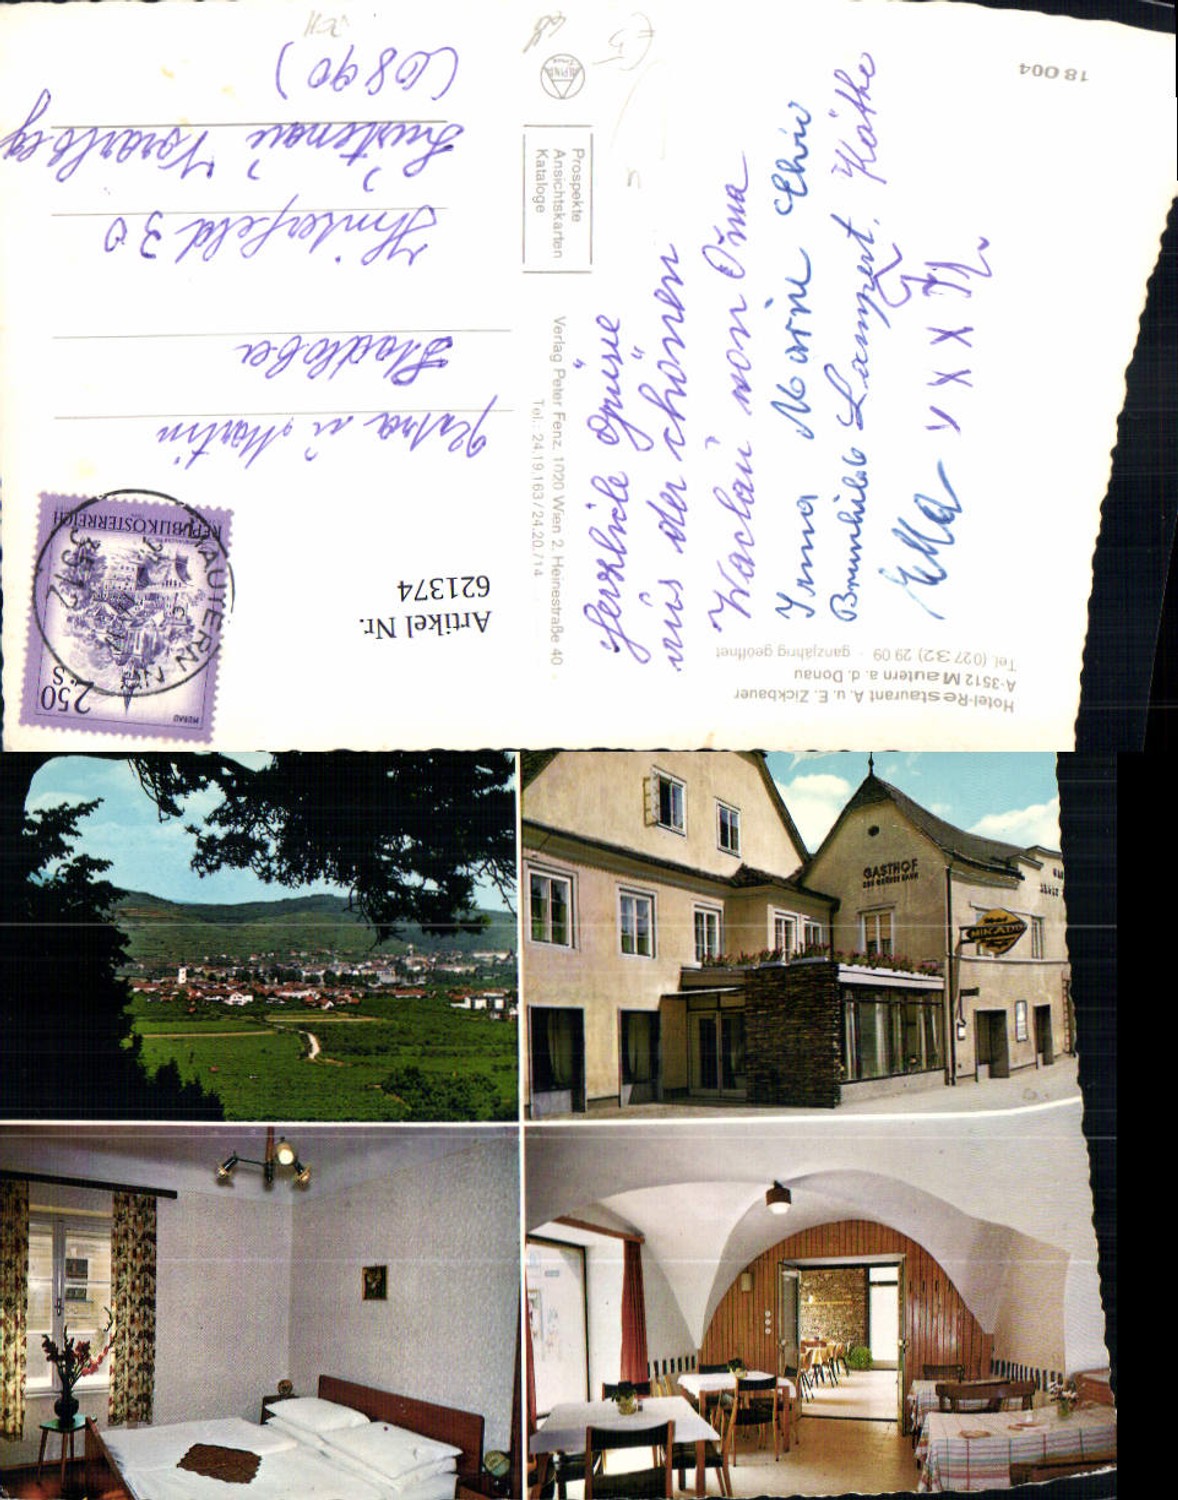 Hotel-Restaurant A. u. E. Zickbauer
A-3512 Mautern a. d. Donau
Tel. (02732) 29 09 - ganzjährig geöffnet
Herzliche Grüße
aus der schönen
Wachau von Oma
Irma Marine
Brunhilde Lampert. Käthe
Ella x x x
18 004
Prospekte
Ansichtskarten
Kataloge
Verlag Peter Fenz, 1020 Wien 2, Heinestraße 40
Tel.: 24.19.163 / 24.20.714
Artikel Nr.
621374
2.50 S
MURAU
REPUBLIK ÖSTERREICH
MAUTERN
3512
Petra u. Martin
Hinterfeld 30
Lustenau, Vorarlberg
(6890)
GASTHOF
ZUM GRÜNEN BAUM
MIKADO